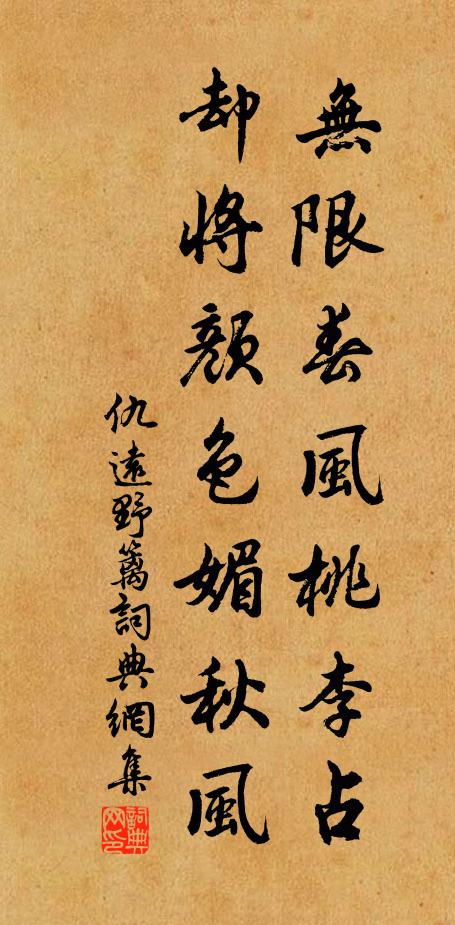 無限春風桃李占
却將顏色媚秋風
仇遠野籬詞典網集
詞典网印